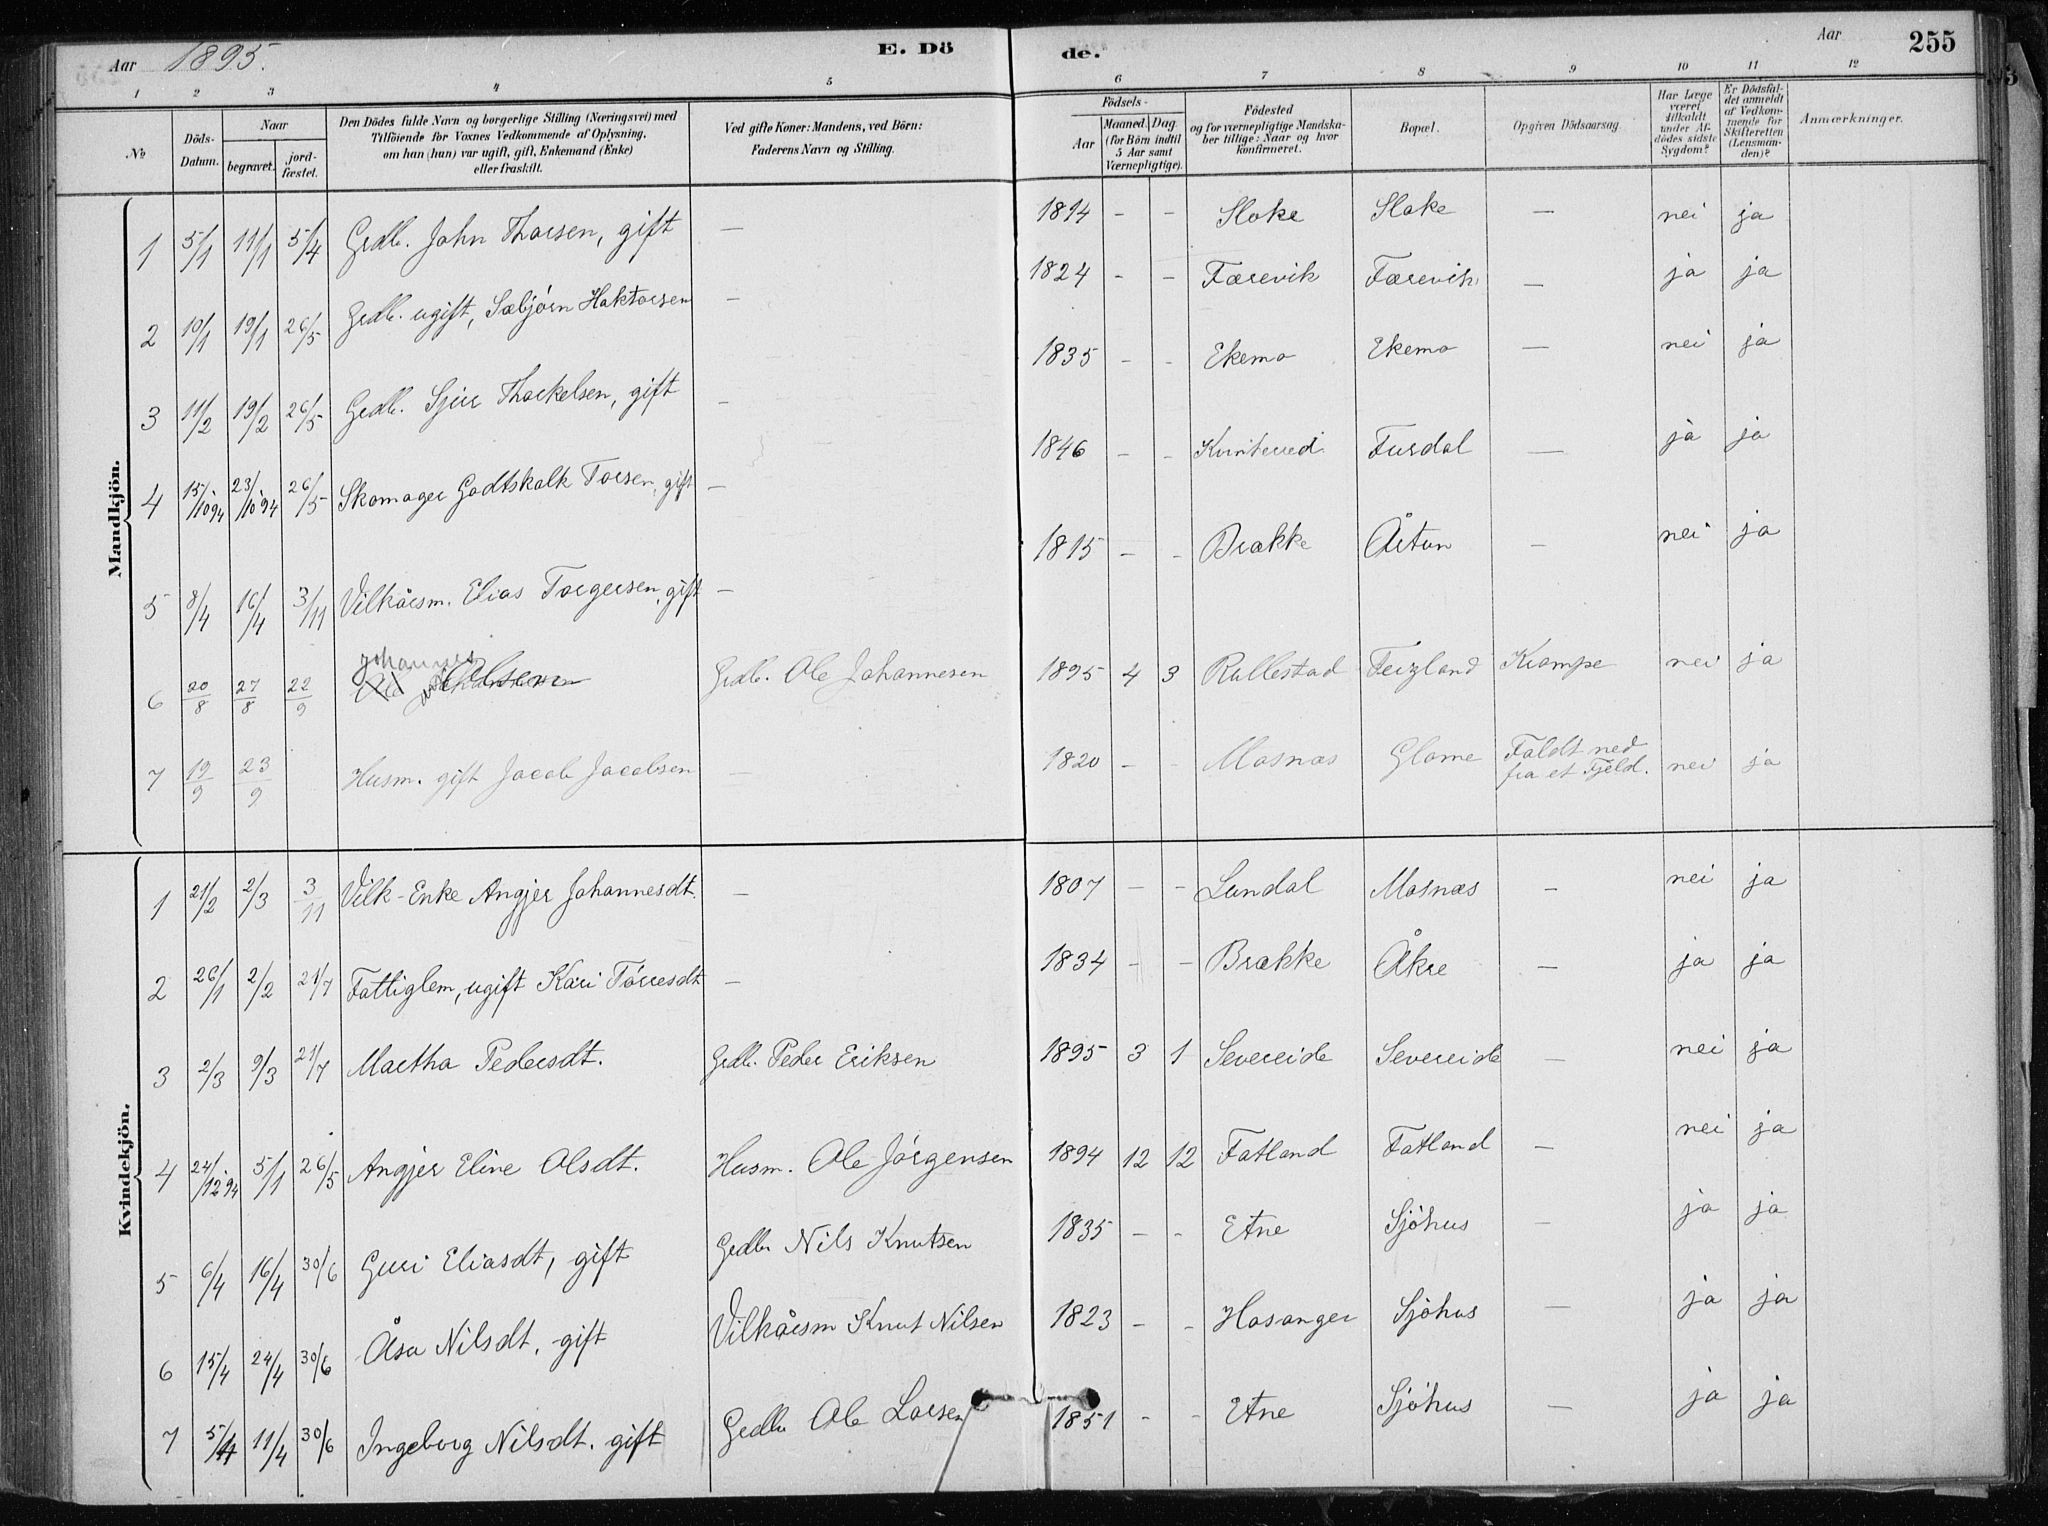 Aar 1895. E. Dö de. Aar 255
1 2 3 4 5 6 7 8 9 10 11 12
No
Döds-Datum.
Naar
begravet.
jord-fæstet.
Den Dödes fulde Navn og borgerlige Stilling (Næringsvei) med
Tilföiende for Voxnes Vedkommende af Oplysning,
om han (hun) var ugift, gift, Enkemand (Enke)
eller fraskilt.
Ved gifte Koner: Mandens, ved Börn:
Faderens Navn og Stilling.
Födsels-
Aar
Maaned. Dag
(for Börn indtil
5 Aar samt
Værnepligtige).
Födested
og for værnepligtige Mandska-
ber tillige: Naar og hvor
konfirmeret.
Bopæl.
Opgiven Dödsaarsag.
Har Læge
været
tilkaldt
under Af-
dödes sidste
Sygdom?
Er Dödsfal-
det anmeldt
af Vedkom-
mende for
Skifteretten
(Lensman-
den)?
Anmærkninger.
Mandkjön.
1 5/1 11/1 5/4 Grdb. John Thorsen, gift — 1814 - - Sloke Sloke — nei ja
2 10/1 19/1 26/5 Grdb. ugift, Sæbjörn Haktorsen — 1824 - - Færevik Færevik — ja ja
3 11/2 19/2 26/5 Grdb. Sjur Thorkelsen, gift — 1835 - - Ekemo Ekemo — nei ja
4 15/10 94 23/10 94 26/5 Skomager Godtskalk Torsen, gift — 1846 - - Fusdal — ja ja
5 8/4 16/4 3/11 Vilkårsm. Elias Torgersen, gift — 1815 - - Brække Årtun — nei ja
6 20/8 27/8 22/9 Johannes Olsen Grdb. Ole Johannesen 1895 4 3 Rullestad Teigland Krampe nei ja
7 19/9 23/9 Husm. gift Jacob Jacobsen — 1820 - - Mosnæs Glome Faldt ned
fra et Fjeld. nei ja
Kvindekjön.
1 21/2 2/3 3/11 Vilk-Enke Angjer Johannesdt. — 1807 - - Lundal Mosnæs — nei ja
2 26/1 2/2 21/7 Fattiglem, ugift Kari Törresdt — 1834 - - Brække Åkre — ja ja
3 2/3 9/3 21/7 Martha Pedersdt. Grdb. Peder Eriksen 1895 3 1 Severeide Severeide — nei ja
4 24/12 94 5/1 26/5 Angjer Eline Olsdt. Husm. Ole Jörgensen 1894 12 12 Fatland Fatland — nei ja
5 6/4 16/4 30/6 Guri Eliasdt, gift Grdb. Nils Knutsen 1835 - - Etne Sjöhus — ja ja
6 15/4 24/4 30/6 Åsa Nilsdt, gift Vilkårsm Knut Nilsen 1823 - - Hosanger Sjöhus — ja ja
7 5/4 11/4 30/6 Ingeborg Nilsdt. gift Grdb. Ole Larsen 1851 - - Etne Sjöhus — ja ja